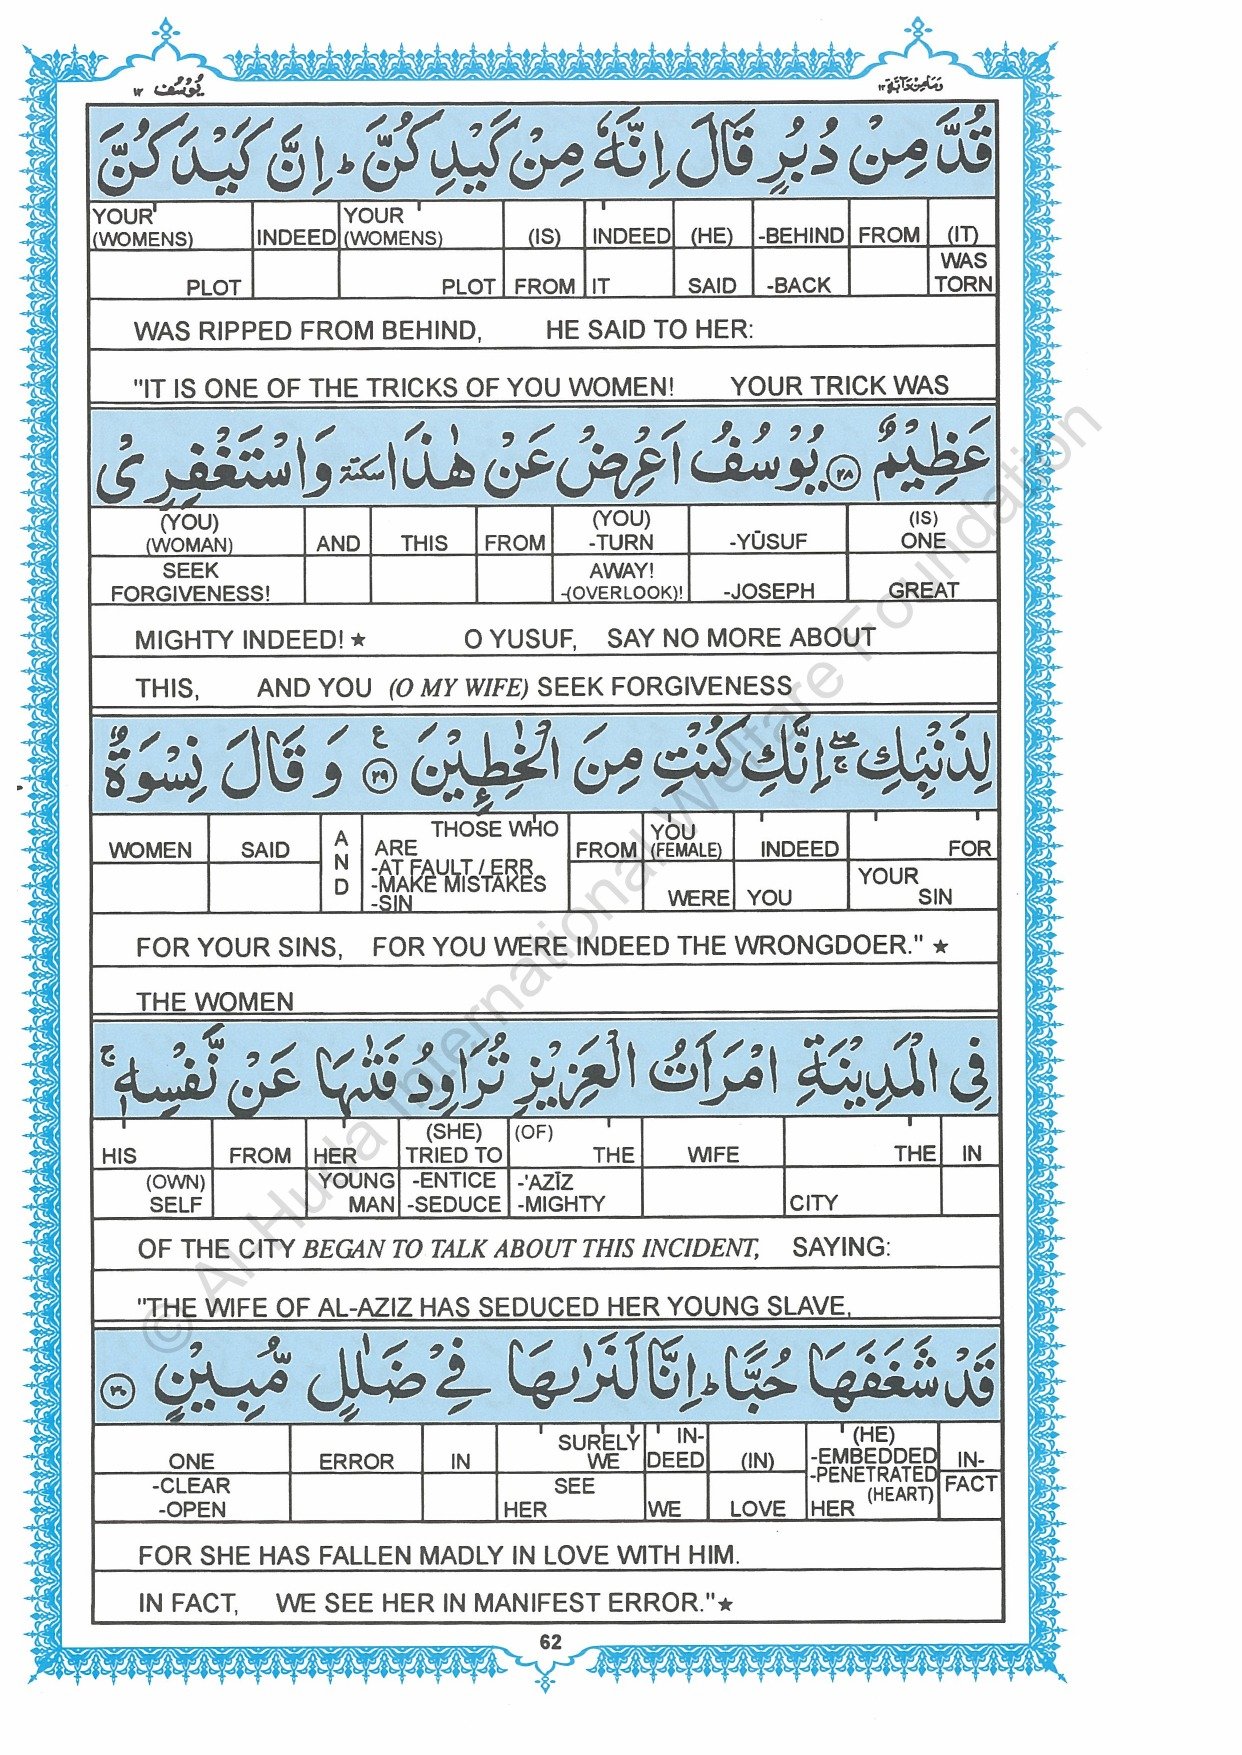 يُوْسُف ١٢
وَمَا مِنْ دَآبَّةٍ ١٢
قُدَّ مِنْ دُبُرٍ قَالَ اِنَّهٗ مِنْ كَيْدِكُنَّ ؕ اِنَّ كَيْدَكُنَّ
YOUR (WOMENS) INDEED YOUR (WOMENS) (IS) INDEED (HE) -BEHIND FROM (IT)
PLOT PLOT FROM IT SAID -BACK WAS TORN
WAS RIPPED FROM BEHIND, HE SAID TO HER:
"IT IS ONE OF THE TRICKS OF YOU WOMEN! YOUR TRICK WAS
عَظِيْمٌ ﴿٢٨﴾ يُوْسُفُ اَعْرِضْ عَنْ هٰذَا سكتة وَاسْتَغْفِرِىْ
(YOU) (WOMAN) AND THIS FROM (YOU) -TURN -YŪSUF (IS) ONE
SEEK FORGIVENESS! AWAY! -(OVERLOOK)! -JOSEPH GREAT
MIGHTY INDEED! ★ O YUSUF, SAY NO MORE ABOUT
THIS, AND YOU (O MY WIFE) SEEK FORGIVENESS
لِذَنْۢبِكِ ۖۚ اِنَّكِ كُنْتِ مِنَ الْخٰطِـِٕيْنَ ﴿٢٩﴾ ع وَ قَالَ نِسْوَةٌ
WOMEN SAID AND THOSE WHO ARE FROM YOU (FEMALE) INDEED FOR
-AT FAULT / ERR -MAKE MISTAKES -SIN WERE YOU YOUR SIN
FOR YOUR SINS, FOR YOU WERE INDEED THE WRONGDOER." ★
THE WOMEN
فِى الْمَدِيْنَةِ امْرَاَتُ الْعَزِيْزِ تُرَاوِدُ فَتٰىهَا عَنْ نَّفْسِهٖ ۚ
HIS FROM HER (SHE) TRIED TO (OF) THE WIFE THE IN
(OWN) SELF YOUNG MAN -ENTICE -SEDUCE -'AZĪZ -MIGHTY CITY
OF THE CITY BEGAN TO TALK ABOUT THIS INCIDENT, SAYING:
"THE WIFE OF AL-AZIZ HAS SEDUCED HER YOUNG SLAVE,
قَدْ شَغَفَهَا حُبًّا ؕ اِنَّا لَنَرٰىهَا فِىْ ضَلٰلٍ مُّبِيْنٍ ﴿٣٠﴾
ONE ERROR IN SURELY WE IN-DEED (IN) (HE) -EMBEDDED -PENETRATED (HEART) IN-
-CLEAR -OPEN SEE HER WE LOVE HER FACT
FOR SHE HAS FALLEN MADLY IN LOVE WITH HIM.
IN FACT, WE SEE HER IN MANIFEST ERROR."★
62
© Al-Huda International Welfare Foundation